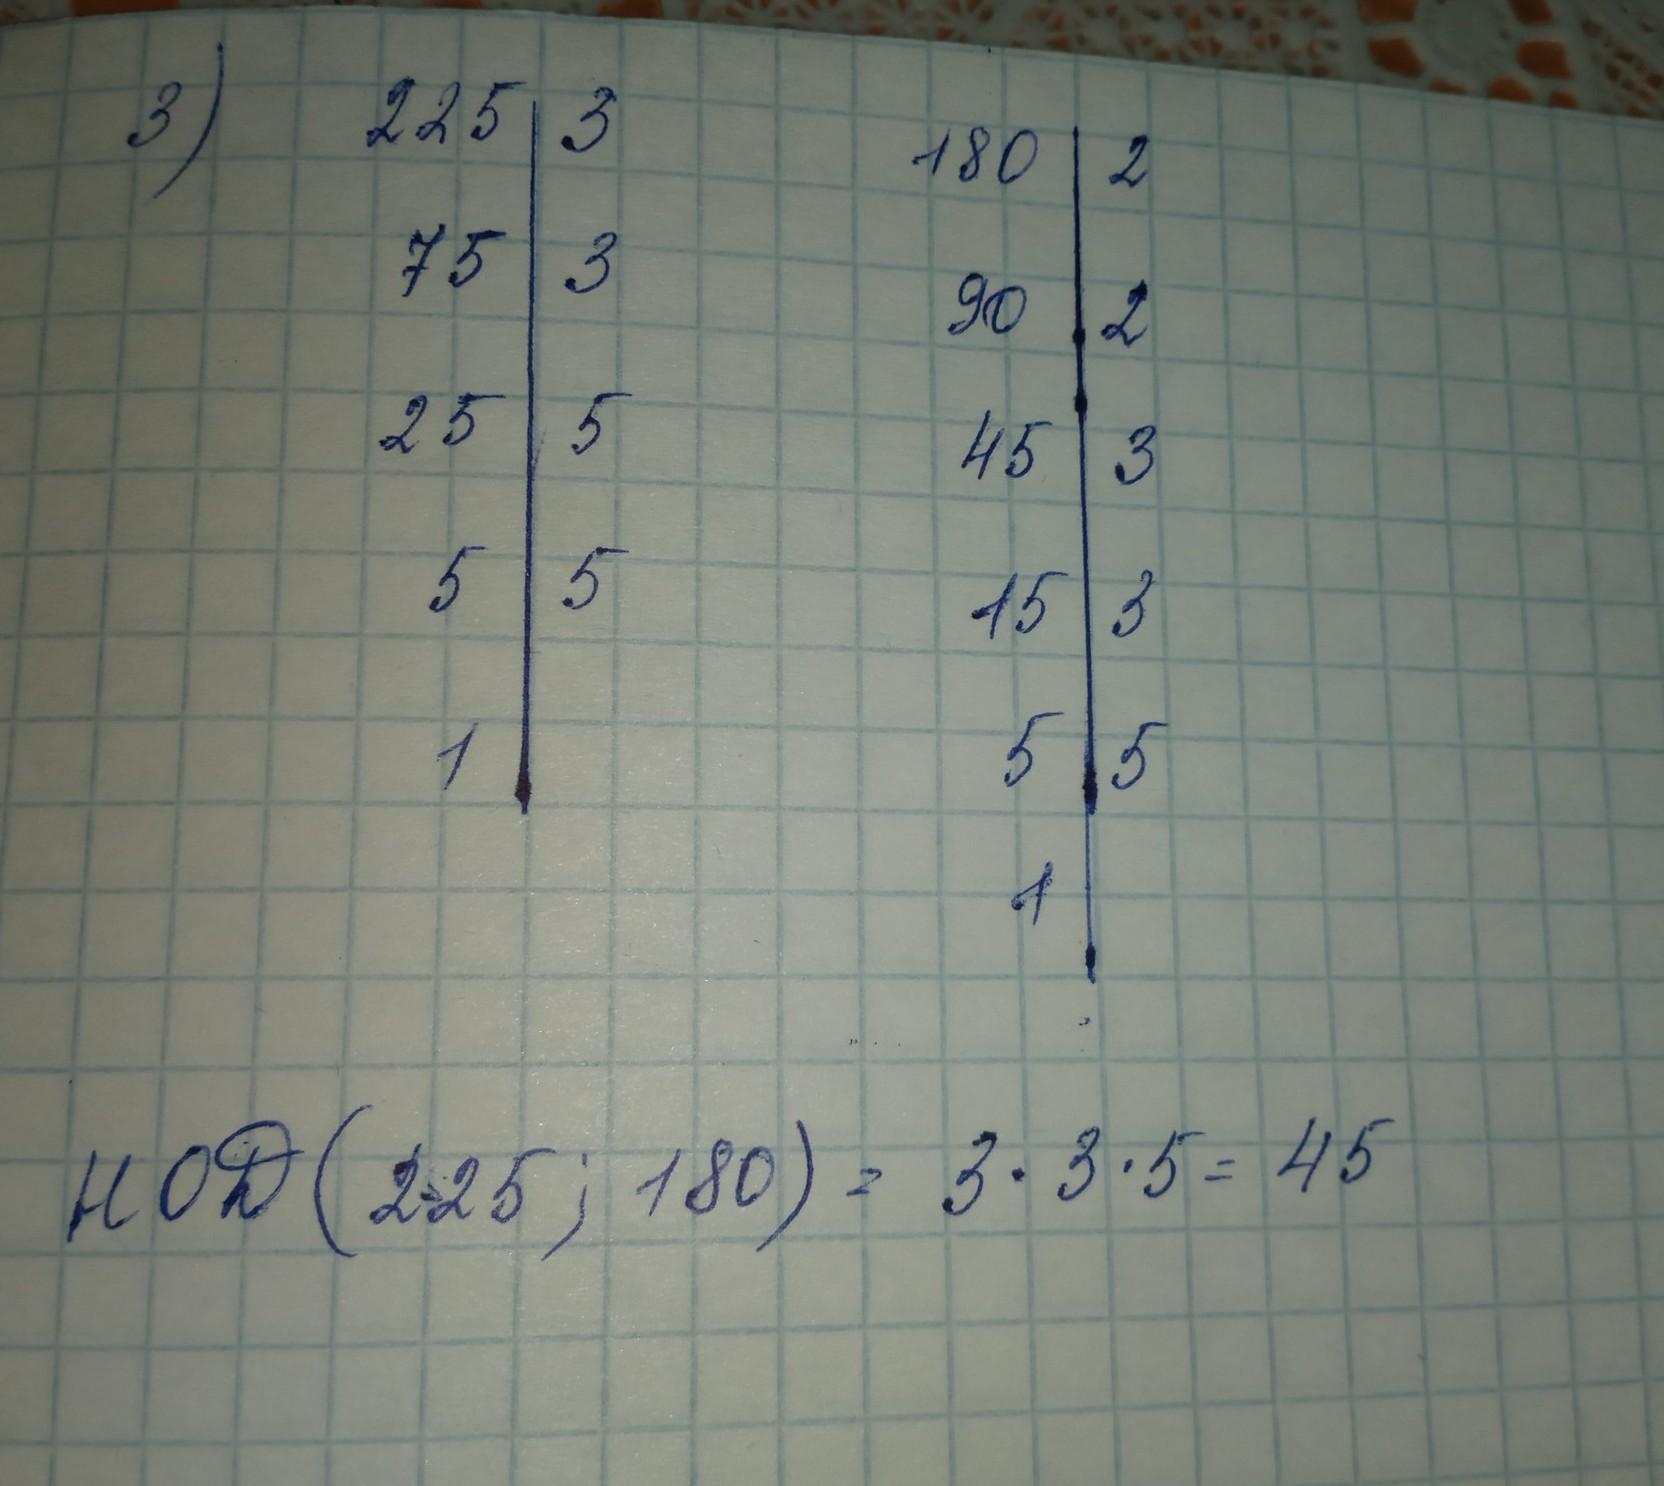 3) 225 | 3 180 | 2
75 | 3 90 | 2
25 | 5 45 | 3
5 | 5 15 | 3
1 | 5 | 5
1 |
НОД (225; 180) = 3 · 3 · 5 = 45